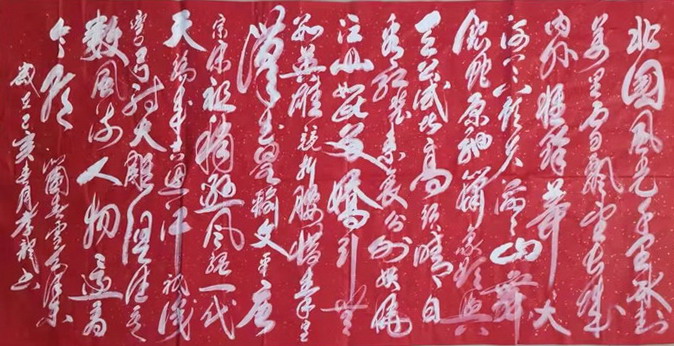 北国风光千里冰封
万里雪飘望长城
内外惟馀莽大
河上下顿失滔山舞
银蛇原驰蜡象欲与
天公试比高须晴日
看红装素裹分外妖娆
江山如此多娇引无
数英雄竞折腰惜秦皇
汉武略输文采唐
宗宋祖稍逊风骚一代
天骄成吉思汗只识
弯弓射大雕俱往矣
数风流人物还看
今朝
岁在己亥